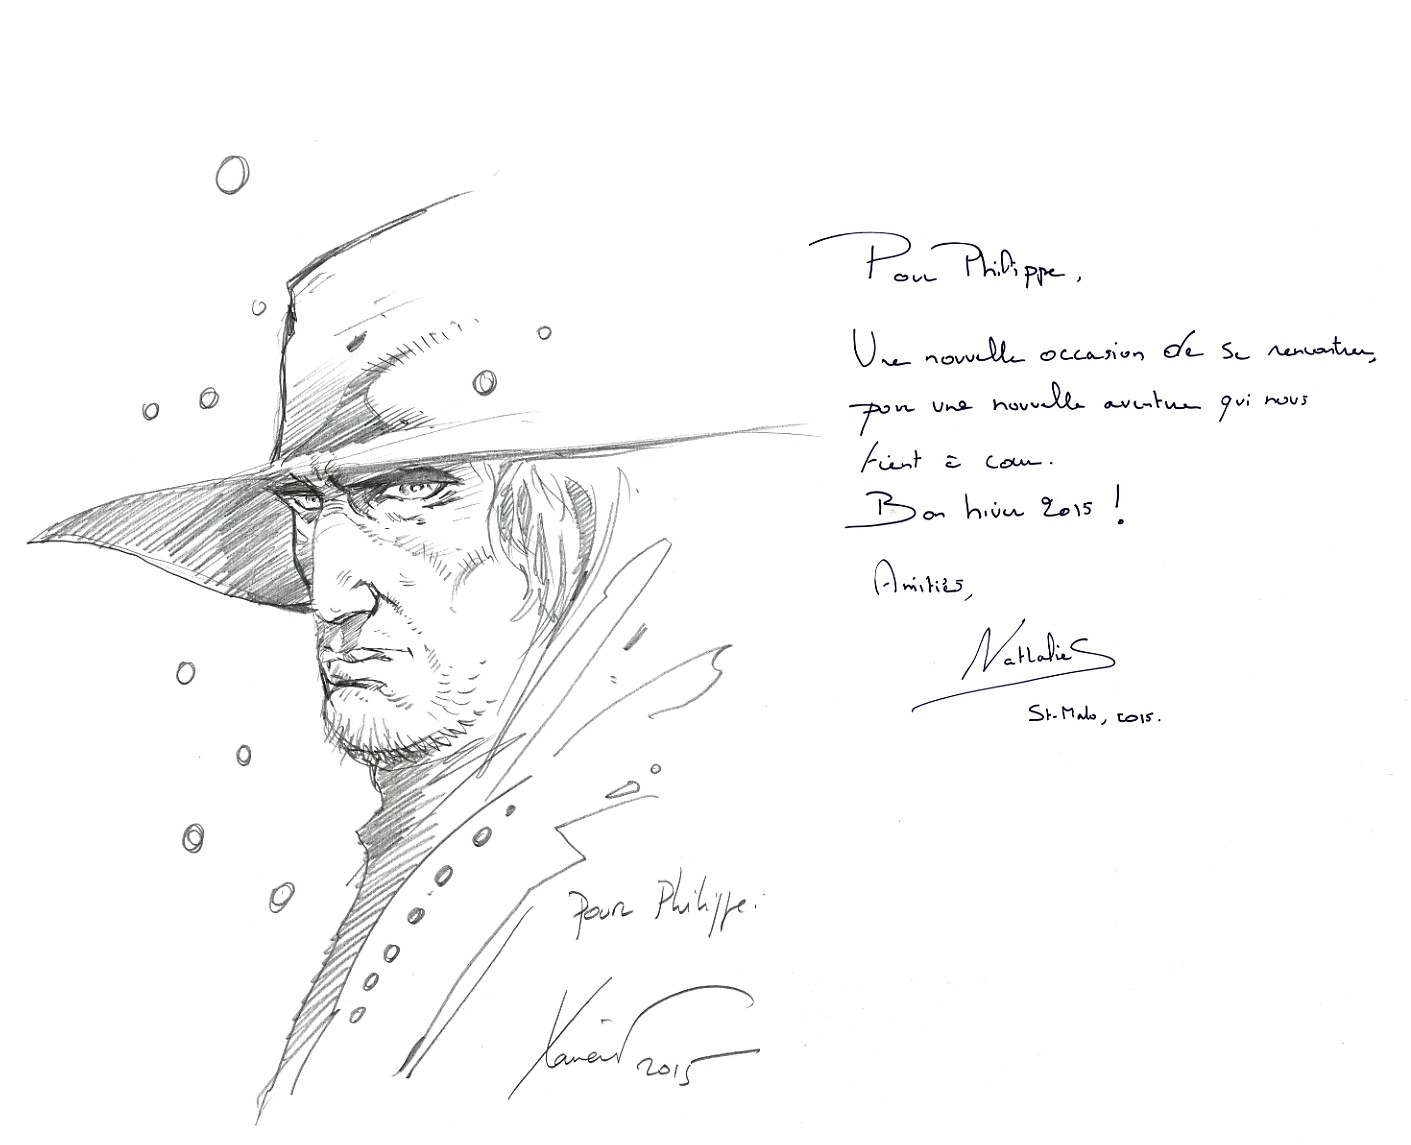 Pour Philippe,
Une nouvelle occasion de se rencontrer,
pour une nouvelle aventure qui nous
tient à cœur.
Bon hiver 2015 !
Amitiés,
Nathalie S
St-Malo, 2015.
Pour Philippe.
Xavier 2015